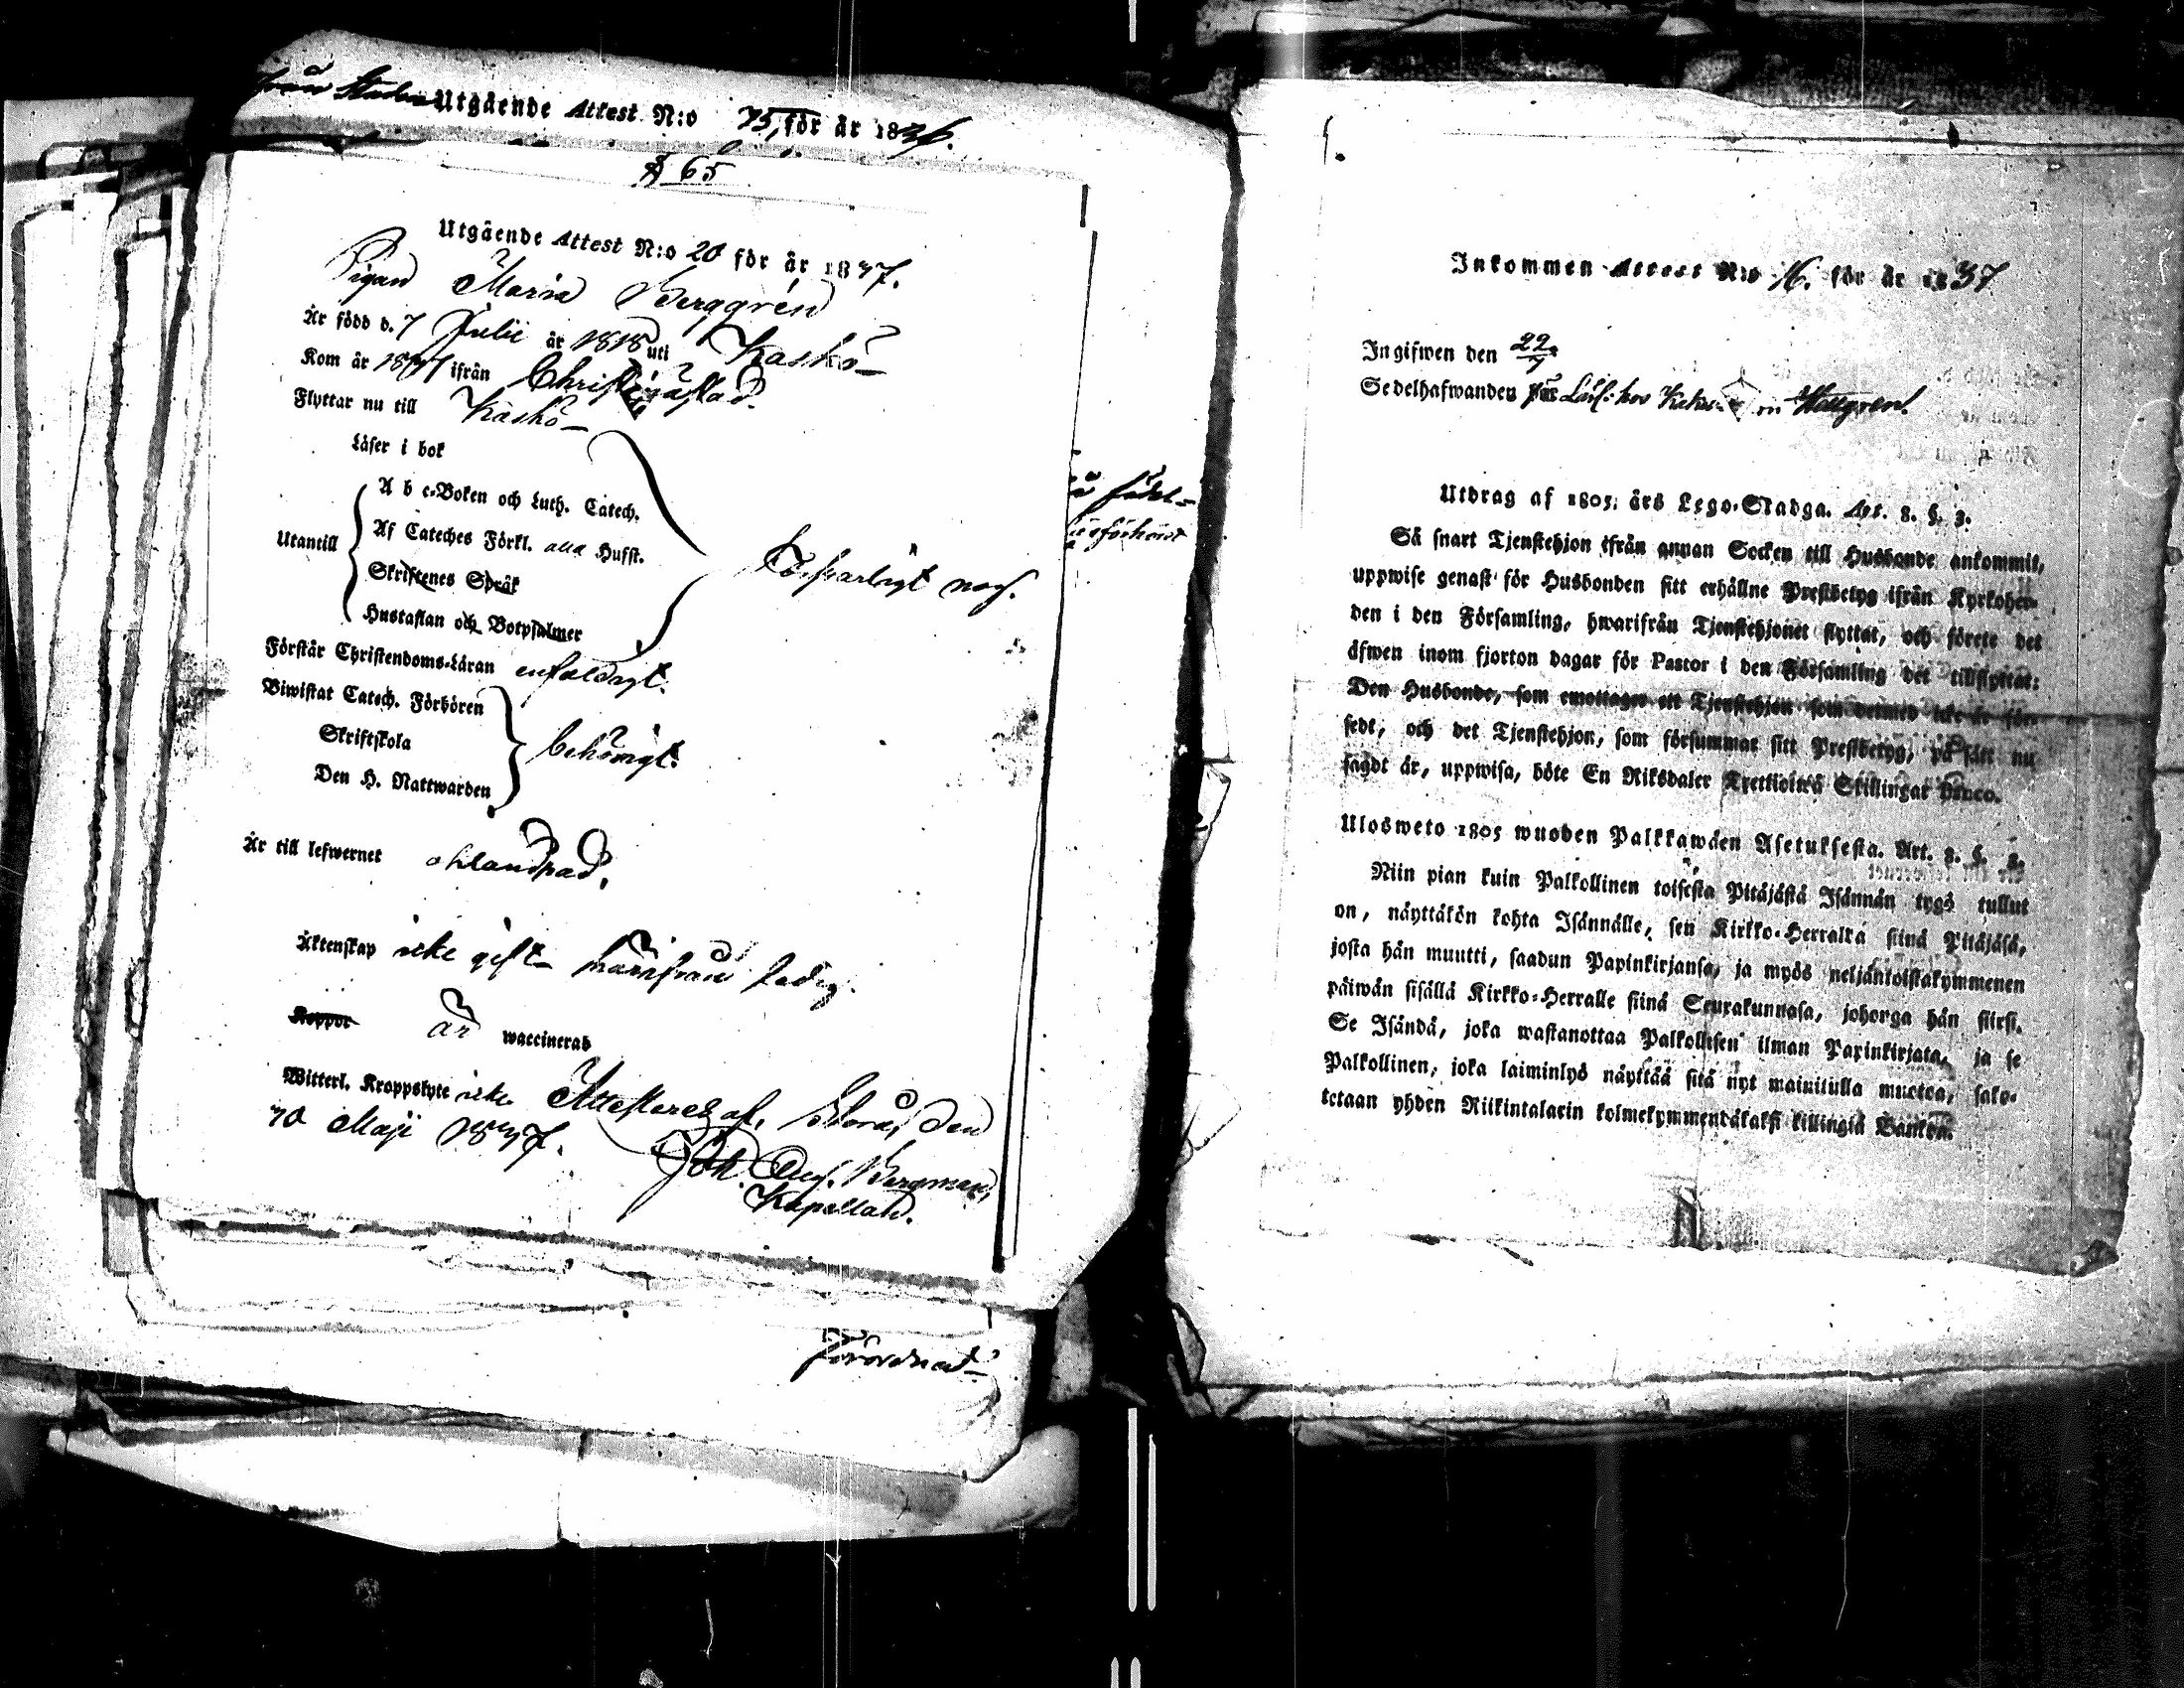 från Utgående Attest N:o 75, för år 1836.
§ 65
Utgående Attest N:o 20 för år 1837.
Pigan Maria Berggrén
Är född d. 7 Julii år 1818 uti Kaskö
Kom år 1837 ifrån Christinæstad.
Flyttar nu till Kaskö
Läser i bok
A b c-Boken och Luth. Catech.
Af Cateches Förkl. alla Husst.
Utantill
Skriftenes Språk
Hustaflan och Botpsalmer
Försvarligt nog.
Förstår Christendoms-Läran enfaldigt.
Biwistat Catech. Förhören
Skriftskola
behörigt.
Den H. Nattwarden
Är till lefwernet oklandrad.
Äktenskap icke gift härifrån ledig.
Koppor är waccinerad
Witterl. Kroppslyte icke Attesteras af, den
30 Maji 1837.
Joh. Aug. Bergman,
Kapellan.
förordnad
Inkommen Attest N:o 16. för år 1837
Ingifwen den 22/7
Sedelhafwanden hos
Utdrag af 1805. års Lego-Stadga. Art. 8. §. 3.
Så snart Tjenstehjon ifrån annan Socken till Husbonde ankommit,
uppwise genast för Husbonden sitt erhållne Prestbetyg ifrån Kyrkoher-
den i den Församling, hwarifrån Tjenstehjonet flyttat, och förete det
äfwen inom fjorton dagar för Pastor i den Församling det tillflyttat:
Den Husbonde, som emottager ett Tjenstehjon som dermed icke är för-
sedt, och det Tjenstehjon, som försummar sitt Prestbetyg, på sätt nu
sagdt är, uppwisa, böte En Riksdaler Trettiotwå Skillingar Banco.
Ulosweto 1805 wuoden Palkkawäen Asetuksesta. Art. 8. §. 3.
Niin pian kuin Palkollinen toisesta Pitäjästä Isännän tygö tullut
on, näyttäkön kohta Isännälle, sen Kirkko-Herralta siinä Pitäjäsä,
josta hän muutti, saadun Papinkirjansa, ja myös neljäntoistakymmenen
päiwän sisällä Kirkko-Herralle siinä Seurakunnasa, johonga hän siirsi.
Se Isändä, joka wastanottaa Palkollisen ilman Papinkirjata, ja se
Palkollinen, joka laiminlyö näyttää sitä nyt mainitulla muotoa, sako-
tetaan yhden Riikintalarin kolmekymmentäkaksi killingiä Bankon.